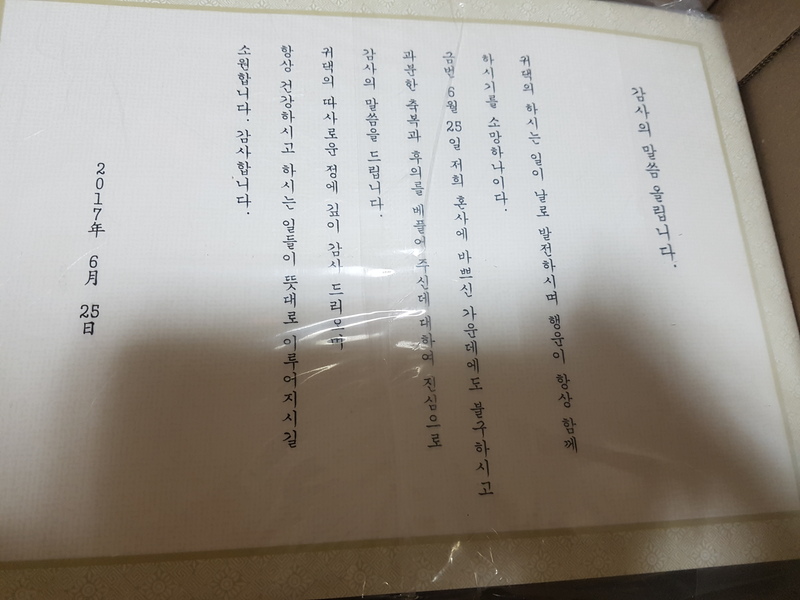 감사의 말씀 올립니다.
귀댁의 하시는 일이 날로 발전하시며 행운이 항상 함께
하시기를 소망하나이다.
금번 6월 25일 저희 혼사에 바쁘신 가운데에도 불구하시고
과분한 축복과 후의를 베풀어 주신데 대하여 진심으로
감사의 말씀을 드립니다.
귀댁의 따사로운 정에 깊이 감사 드리오며
항상 건강하시고 하시는 일들이 뜻대로 이루어지시길
소원합니다. 감사합니다.
2017年 6月 25日